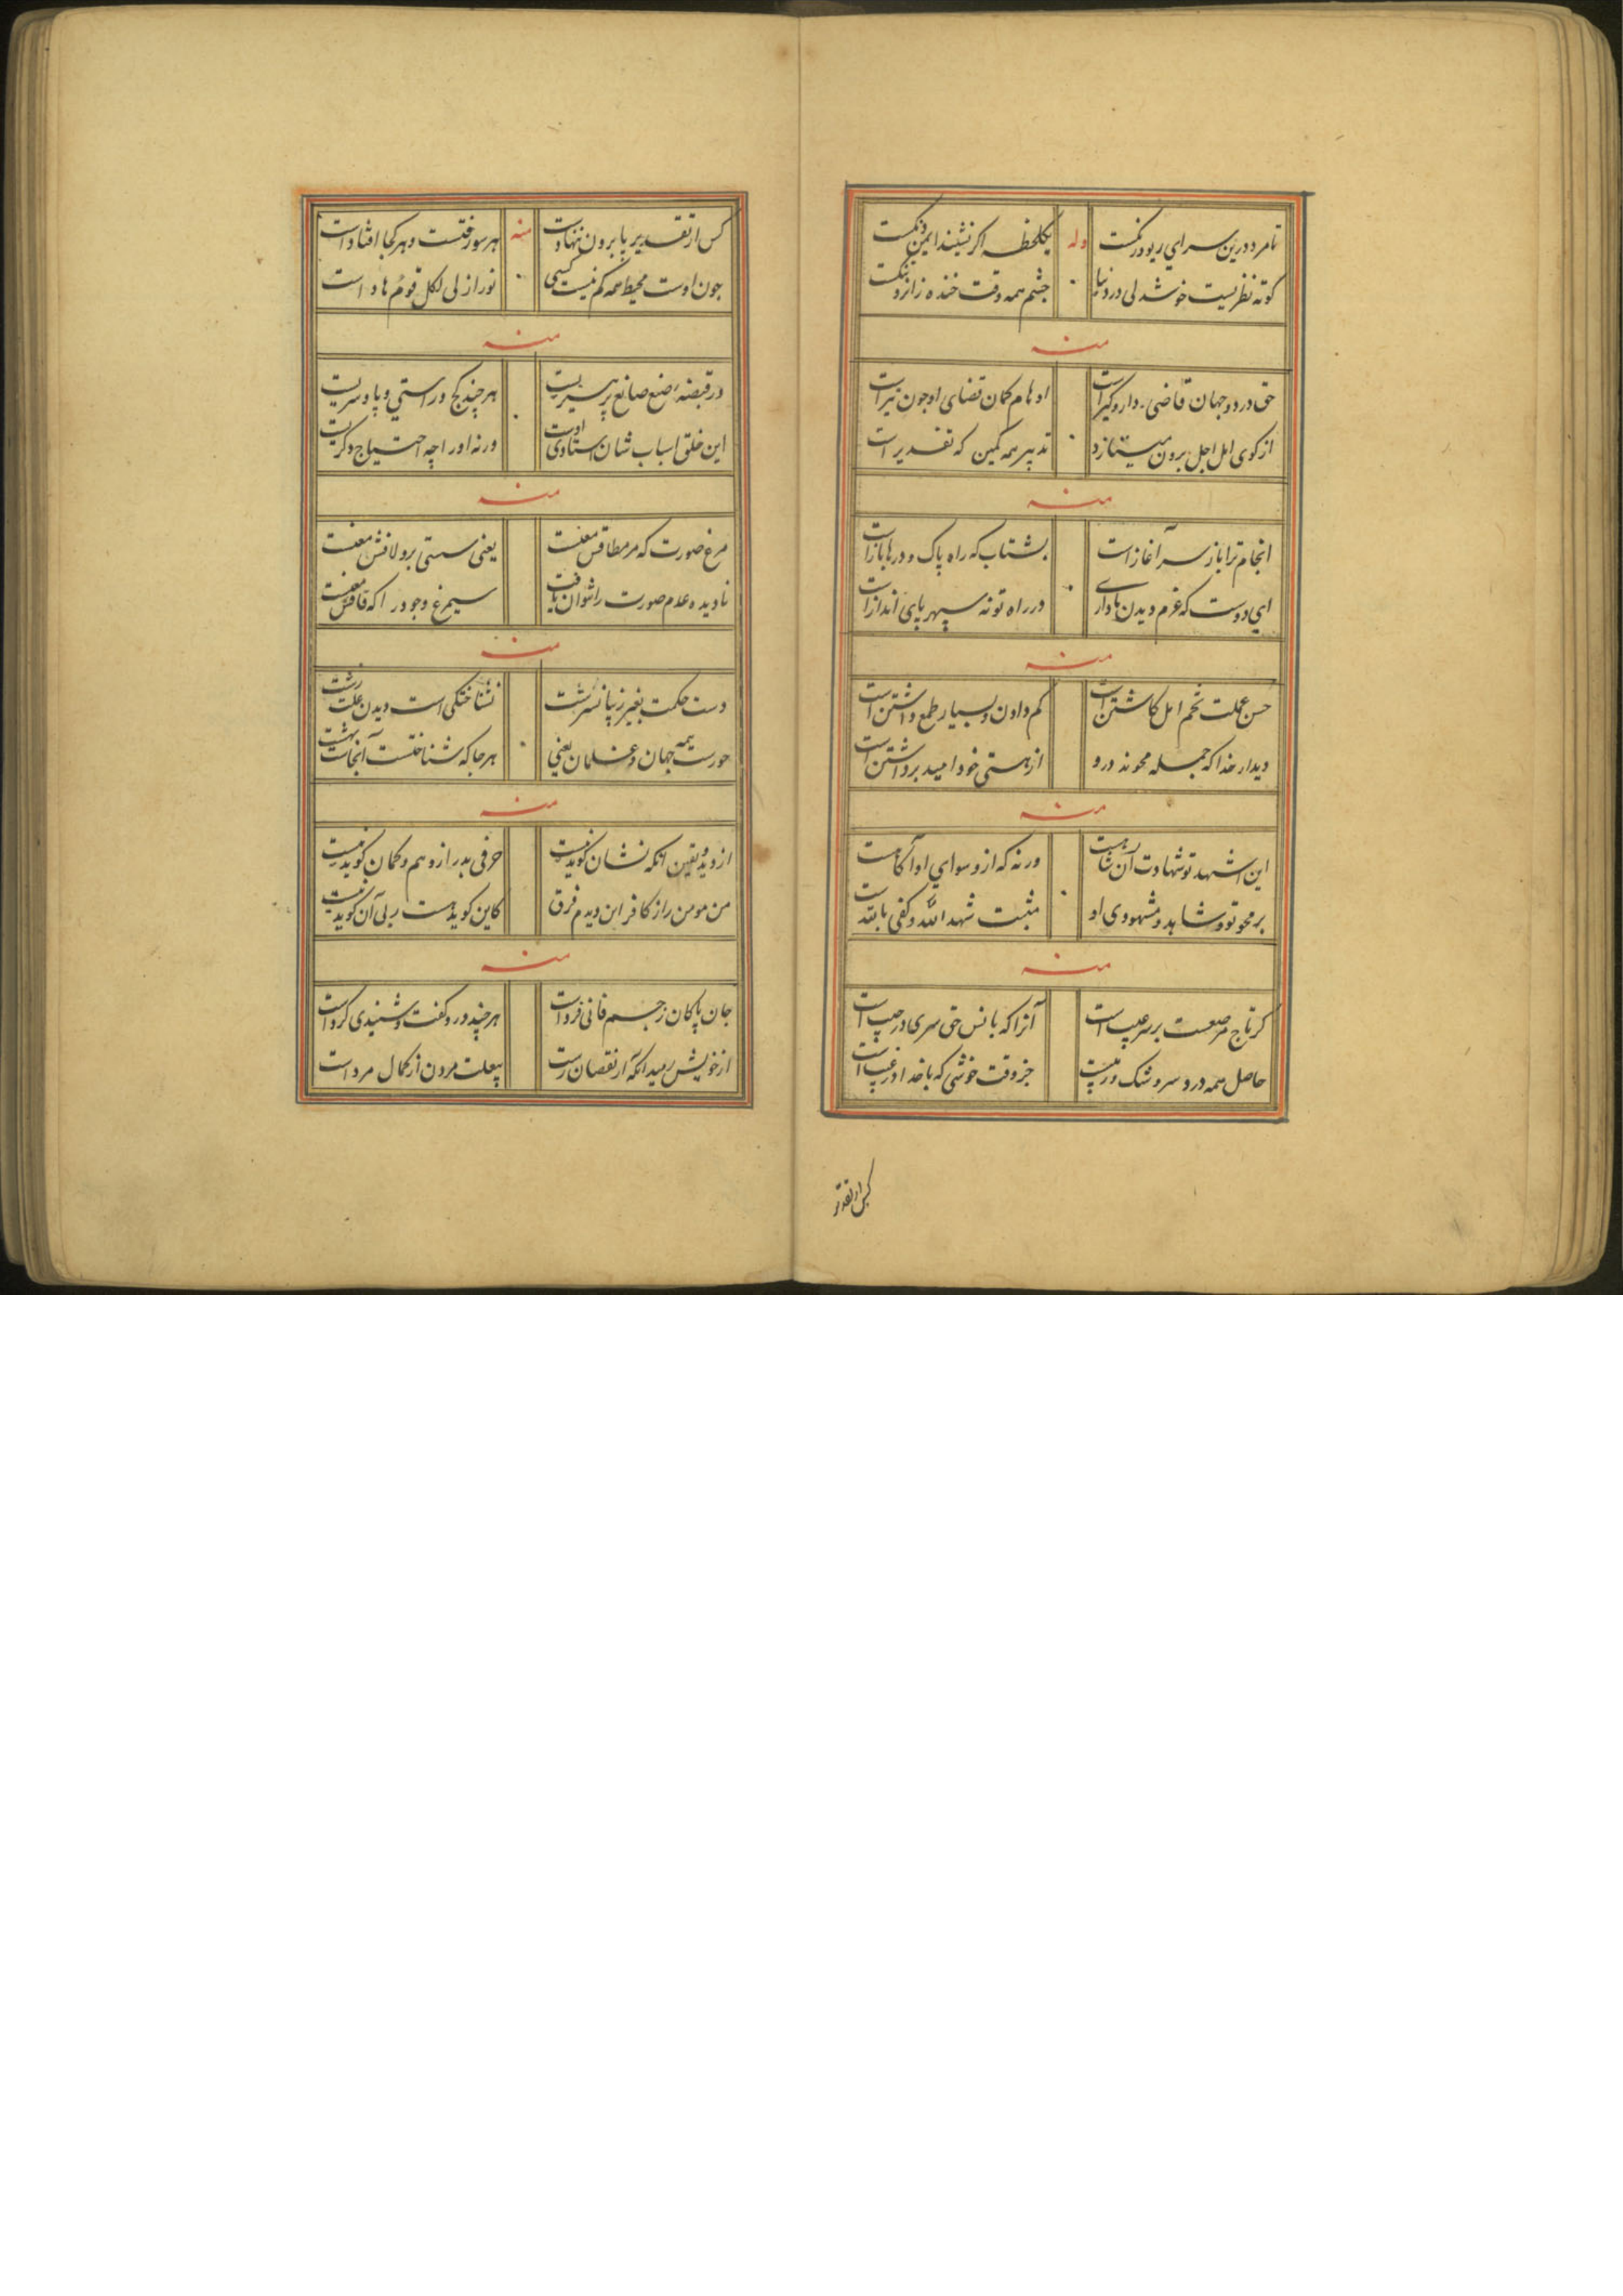 تا مرد درین سرای ریو و رنگست
وله
یکلحظه اگر نشیند ایمن دنگست
کوته نظریست خوشدلی در دنیا
چشم همه وقت خنده زانرو تنگست
منه
حق در دو جهان قاضی دار و گیر است
اوهام کمان قضای او چون تیر است
از کوی امل اجل برون میتازد
تدبیر همه کمین که تقدیر است
منه
انجام ترا باز سر آغاز است
بشتاب که راه پاک و درها باز است
ای دوست که عزم دیدن ما داری
در راه تو نه سپهر پای انداز است
منه
حسن عملت تخم امل کاشتن است
کم دادن و بسیار طمع داشتن است
دیدار خدا که جمله محوند درو
از هستی خود امید برداشتن است
منه
این اشهد تو شهادت آن شاهست
ورنه که ازو سوای او آگاهست
بر محو تو و شاهد و مشهودی او
مثبت شهد الله و کفی بالله است
منه
گر تاج مرصعست بر سر عیب است
آنرا که بانس حق سری در جیب است
حاصل همه درد سر و شک و ریب است
جز وقت خوشی که با خدا در غیب است
کس از تقدیر
کس از تقدیر پا برون ننهادست
منه
هر سو رفتست و هر کجا افتادست
چون اوست محیط همه گم نیست کسی
نور ازلی لکل قوم هاد است
منه
در قبضه صنع صانع
هر چند کج و راستی و پا و سریست
این خلق اسباب شان استادی اوست
ورنه او را چه احتیاج دگریست
منه
مرغ صورت که
یعنی هستی برو لافش معنیست
نادیده عدم صورت را نتوان یافت
سیمرغ وجود را که قافش معنیست
منه
دست حکمت بغیر زیبا نسرشت
نشناختگی است دیدن علت زشت
حورست همه جهان و غلمان یعنی
هر جا که شناختست آنجاست بهشت
منه
از دید و یقین آنکه نشان گوید نیست
حرفی بدر از وهم و گمان گوید نیست
من مومن را ز کافر این دیدم فرق
کاین گوید هست ربی آن گوید نیست
منه
جان پاکان ز جسم فانی فرد است
هر چند درو گفت و شنیدی کرد است
از خویش رمید آنکه از نقصان رست
بیعلت مردن از کمال مرد است